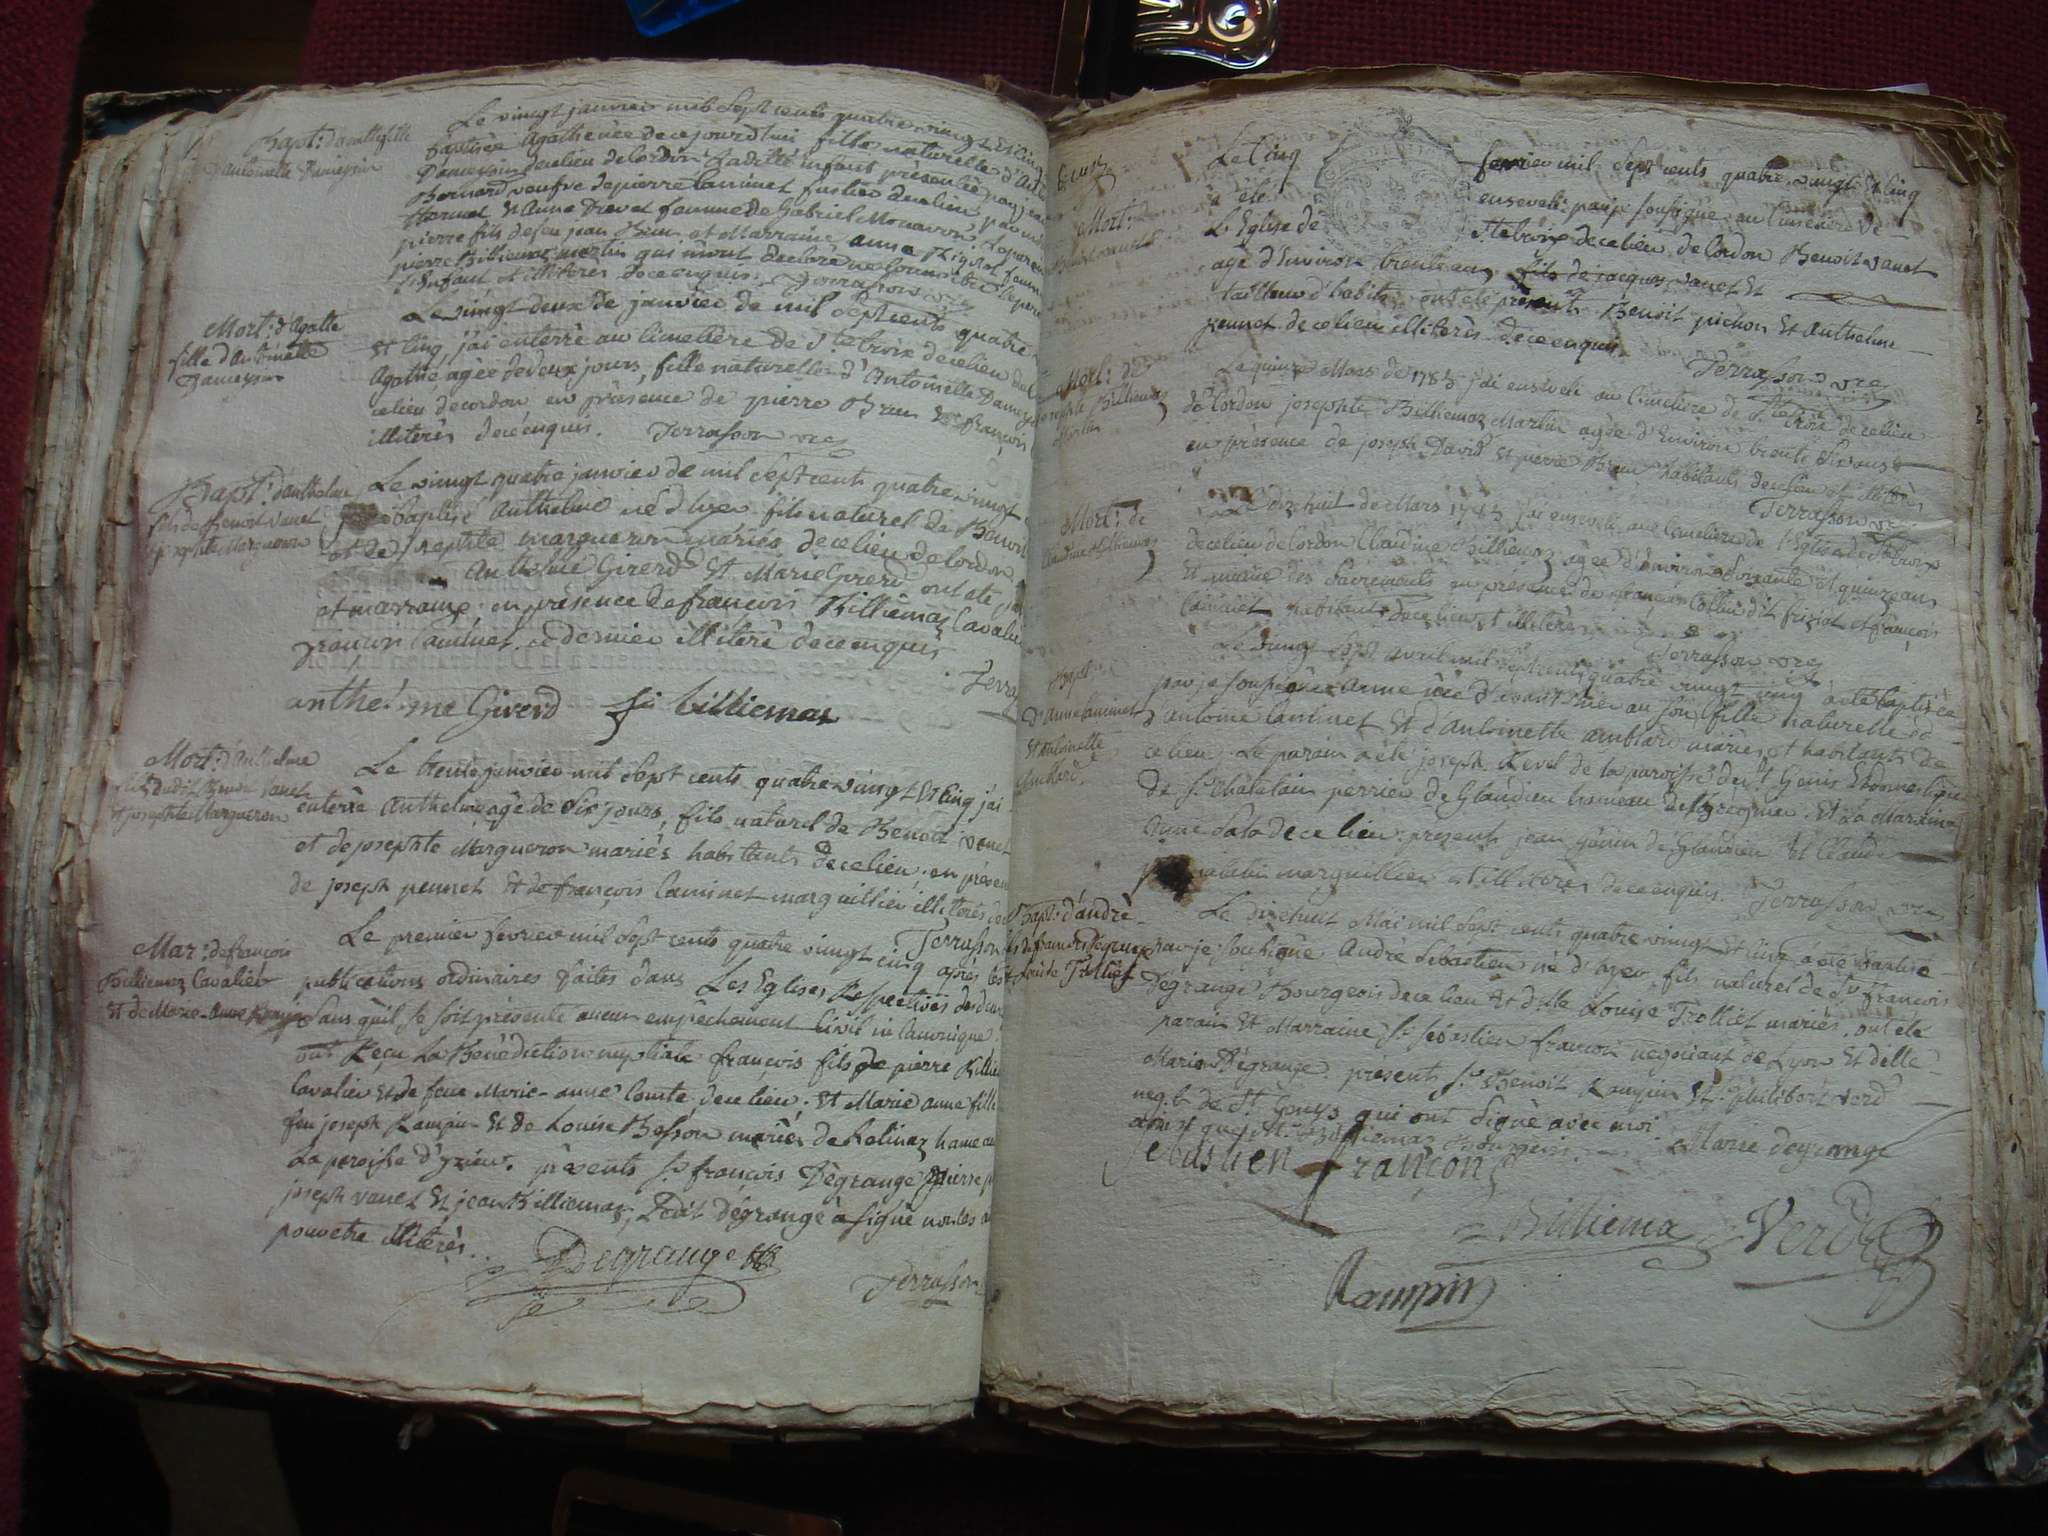 Bapt: d'agathe fille
d'antoinette Dameysin
Le vingt janvier mil sept cents quatre vingt et cinq
baptisée Agathe née de ce jourd'hui fille naturelle d'Ant
Dameysin de ce lieu de Cordon Ladille enfant présentée par jea
Bernard veufve de pierre Caminet fustier de ce lieu, par mi
et Anne Drevet femme de Gabriel Monavon, Le parain
pierre fils de feu jean Brun et Marraine anne femm
pierre Billiemaz martin qui m'ont declaré ne connoitre le pere
l'Enfant et illiterés de ce enquis. Terrasson vre
Mort: d'Agatte
fille d'Antoinette
Dameysin
Le vingt deux de janvier de mil sept cents quatre
et cinq j'ai enterré au cimetière de Ste Croix de ce lieu de C
Agathe agée de deux jours, fille naturelle d'Antoinette Dameys
ce lieu de cordon en présence de pierre Brun et françois
illiterés de ce enquis. Terrasson vre
Bapt: d'anthelme
fils de Benoit Vanet
et josephte Margueron
Le vingt quatre janvier de mil sept cents quatre vingt
baptisé Anthelme né d'hyer fils naturel de Benoit
et de josephte margueron mariés de ce lieu de Cordon
Anthelme Girerd et Marie Girerd ont eté
et marraine en présence de francois Billiemaz Cavalie
françois Caminet ce dernier illiteré de ce enquis
Terra
anthelme Girerd fr billiemaz
Mort: d'Anthelme
fils dudit Benoit Vanet
et josephte Margueron
Le trente janvier mil sept cents quatre vingt et cinq j'ai
enterré Anthelme agé de six jours, fils naturel de Benoit Vanet
et de josephte Margueron mariés habitants de ce lieu, en présen
de joseph pennet et de françois Caminet marguillier illiterés de
Terrasson
Mar: de francois
Billiemaz Cavalier
et de Marie-Anne Rampin
Le premier fevrier mil sept cents quatre vingt cinq après les
publications ordinaires faites dans Les Eglises Respectives des deux
Sans qu'il se soit présenté aucun empêchement Civil ni Canonique
ont Reçu La Bénédiction nuptiale françois fils de pierre Billie
Cavalier et de feue Marie-anne Comte de ce lieu, et Marie anne fille
feu joseph Rampin et de Louise Besson mariés de hameau
La paroisse d'yzieu. présents Sr francois Degrange pierre
joseph vanet et jean Billiemaz, Ledit Degrange a signé non les au
pour etre illiterés.
Degrange
Terrasson
Mort:
Le Cinq fevrier mil sept cents quatre vingt et cinq
a été enseveli par je soussigné au Cimetière de
L'Eglise de Ste Croix de ce lieu de Cordon Benoit vanet
agé d'Environ trente ans fils de jacques vanet et
tailleur d'habits ont été présents Benoit pichon et Anthelme
pennet de ce lieu illiterés de ce enquis
Terrasson vre
Mort: de
josephte Billiemaz
Martin
Le quinze Mars de 1785 j'ai enseveli au Cimetière de Ste Croix de ce lieu
de Cordon josephte Billiemaz Martin agée d'Environ trente six ans
en présence de joseph David et pierre Brun habitants de ce lieu et illiterés
Terrasson vre
Mort: de
Claudine Billiemaz
Le dix huit de Mars 1785 j'ai enseveli au Cimetière de l'Eglise de Ste Croix
de ce lieu de Cordon Claudine Billiemaz agée d'Environ soixante et quinze ans
et munie des Sacrements en présence de françois Collin dit friziat et françois
Caminet habitants de ce lieu et illiterés
Terrasson vre
Bapt:
d'Anne Caminet
et Antoinette
Amblard
Le vingt sept avril mil sept cents quatre vingt cinq a eté baptisée
par je soussigné Anne née d'avant hier au soir fille naturelle
d'antoine Caminet et d'Antoinette amblard mariés et habitants de
ce lieu. Le parain a été joseph Revel de la paroisse de St Genis
de Sr Chatelain perrier de Glandieu hameau de St et La Marraine
anne de ce lieu: présents jean de Glandieu et Claude
marguillier et illiterés de ce enquis. Terrasson vre
Bapt: d'andré
fils de francois Degrange
et Louise Trolliet
Le dix huit Mai mil sept cents quatre vingt et cinq a été baptisé
par je soussigné André Sébastien né d'hyer fils naturel de Sr François
Degrange Bourgeois de ce lieu et dlle Louise Trolliet mariés. ont été
parain et Marraine Sr Sébastien françon négociant de Lyon et dlle
Marie Degrange présents Sr Benoit Rampin et Sr philibert verd
negt. de St Genys qui ont signé avec moi
ainsi que Mr Billiemaz Bourgeois
Sebastien françon Marie degrange
Billiema Verd
Rampin